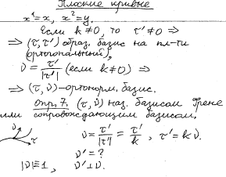 Плоские кривые
x¹=x, x²=y.
Если k≠0 то τ'≠0 ⇒
⇒ (τ, τ') образ. базис на пл-ти
(ортогональный),
ν = τ'/|τ'| (если k≠0) ⇒
⇒ (τ, ν)-ортонорм. базис.
Опр. 7. (τ, ν) наз. базисом Френе
или сопровождающим базисом.
ν τ ν = τ'/|τ'| = τ'/k, τ' = kν.
ν' = ?
|ν|≡1, ν'⊥ν.